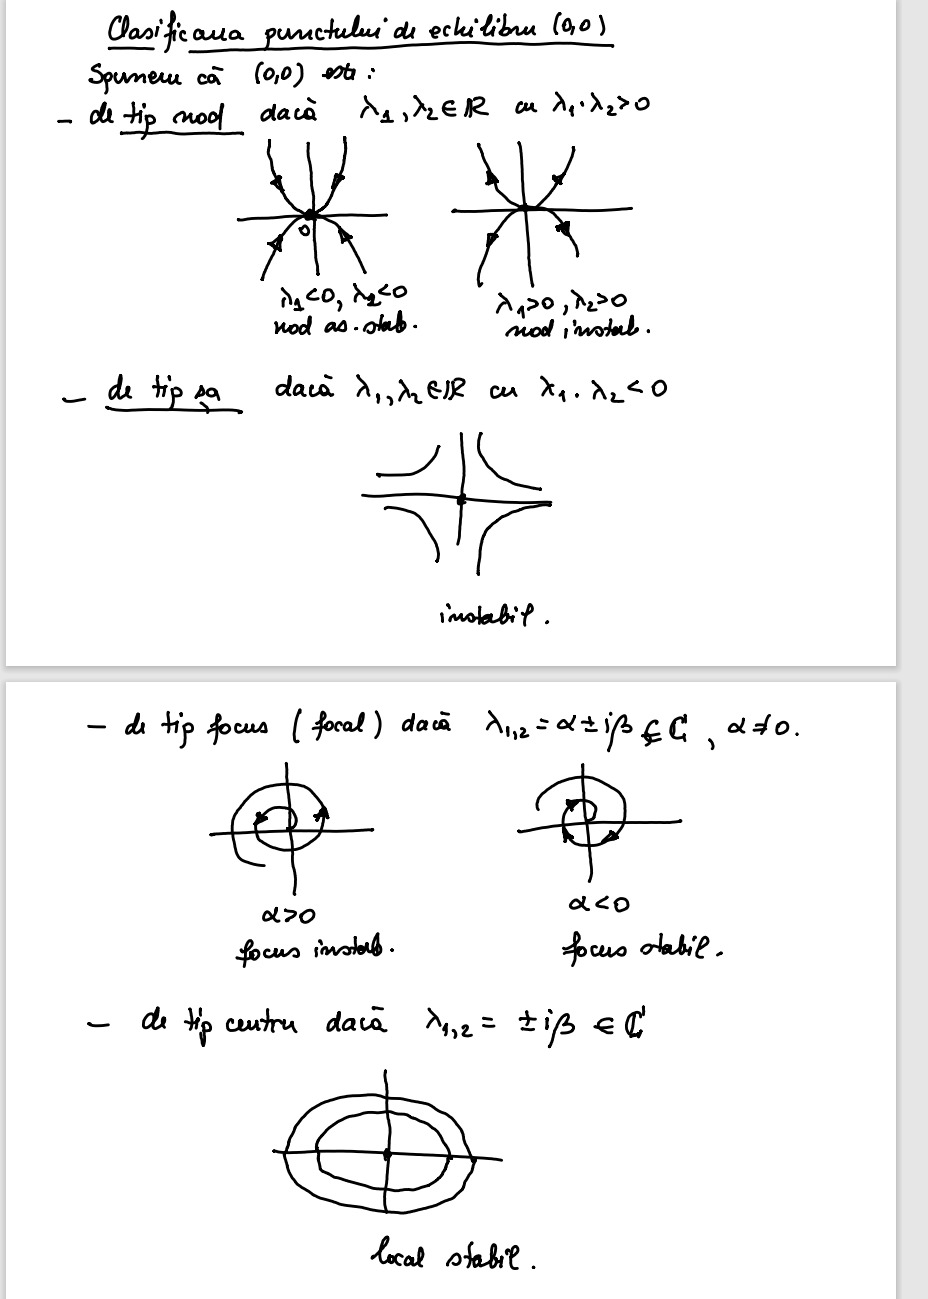 Clasificarea punctului de echilibru (0,0)
Spunem că (0,0) este :
- de tip nod dacă λ₁, λ₂ ∈ ℝ cu λ₁·λ₂>0
0
λ₁<0, λ₂<0
nod as. stab.
λ₁>0, λ₂>0
nod instab.
- de tip șa dacă λ₁, λ₂ ∈ ℝ cu λ₁·λ₂<0
instabil.
- de tip focus (focal) dacă λ₁,₂ = α ± iβ ∈ ℂ, α ≠ 0.
α>0
focus instab.
α<0
focus stabil.
- de tip centru dacă λ₁,₂ = ± iβ ∈ ℂ
local stabil.